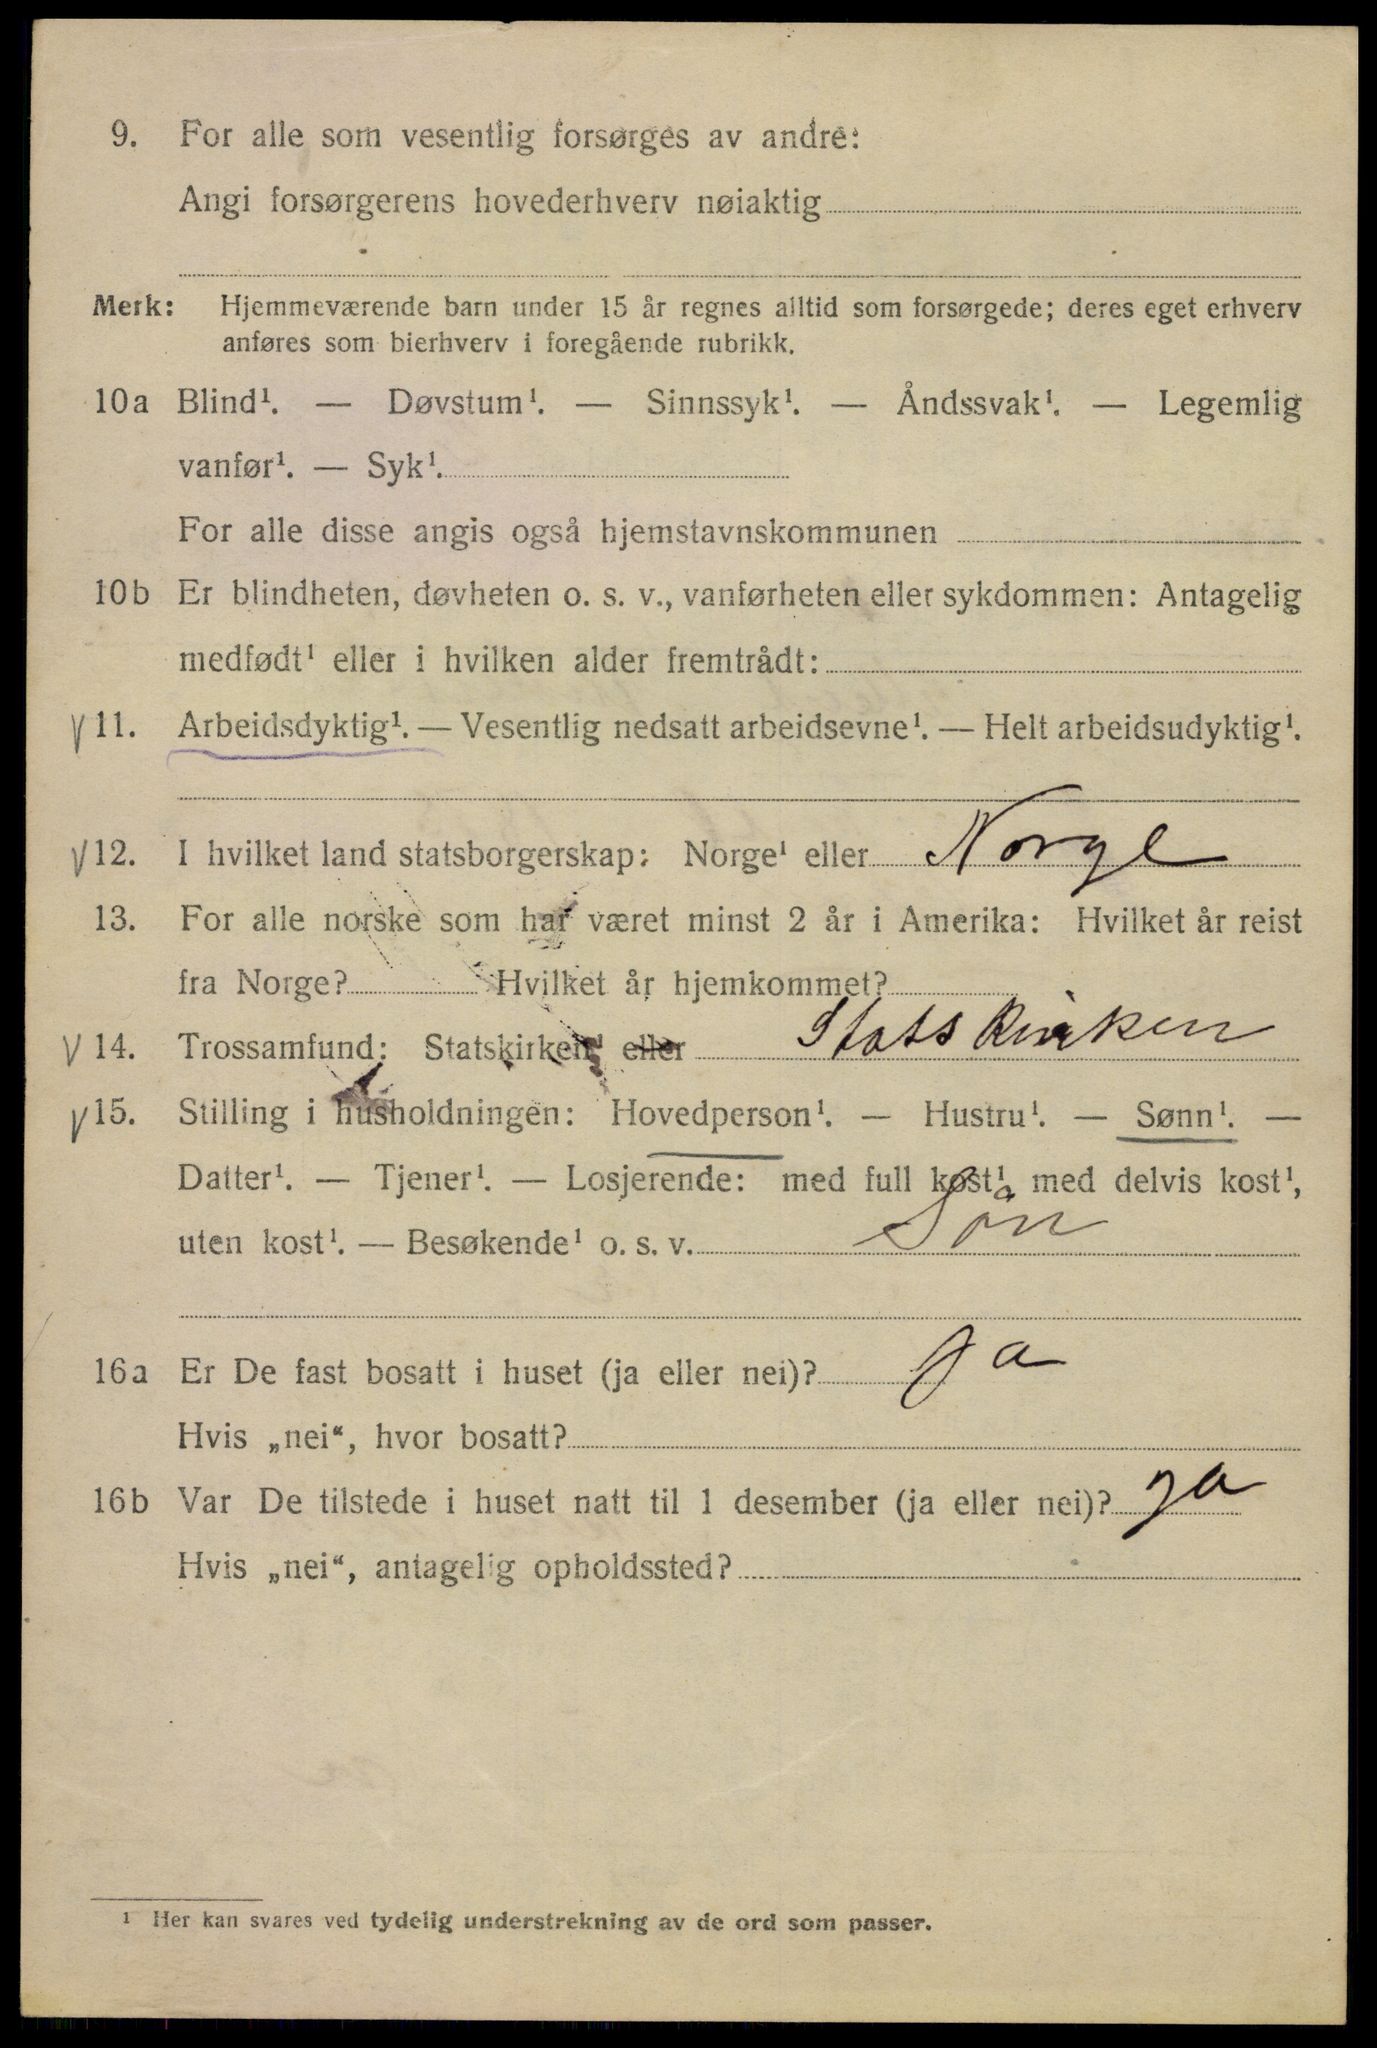 9. For alle som vesentlig forsørges av andre:
Angi forsørgerens hovederhverv nøiaktig
Merk: Hjemmeværende barn under 15 år regnes alltid som forsørgede; deres eget erhverv
anføres som bierhverv i foregående rubrikk.
10a Blind¹. — Døvstum¹. — Sinnssyk¹. — Åndssvak¹. — Legemlig
vanfør¹. — Syk¹.
For alle disse angis også hjemstavnskommunen
10b Er blindheten, døvheten o. s. v., vanførheten eller sykdommen: Antagelig
medfødt¹ eller i hvilken alder fremtrådt:
V 11. Arbeidsdyktig¹. — Vesentlig nedsatt arbeidsevne¹. — Helt arbeidsudyktig¹.
V 12. I hvilket land statsborgerskap: Norge¹ eller Norge
13. For alle norske som har været minst 2 år i Amerika: Hvilket år reist
fra Norge? Hvilket år hjemkommet?
V 14. Trossamfund: Statskirken¹ eller Statskirken
V 15. Stilling i husholdningen: Hovedperson¹. — Hustru¹. — Sønn¹. —
Datter¹. — Tjener¹. — Losjerende: med full kost¹, med delvis kost¹,
uten kost¹. — Besøkende¹ o. s. v. Sån
16a Er De fast bosatt i huset (ja eller nei)? ja
Hvis „nei“, hvor bosatt?
16b Var De tilstede i huset natt til 1 desember (ja eller nei)? ja
Hvis „nei“, antagelig opholdssted?
¹ Her kan svares ved tydelig understrekning av de ord som passer.